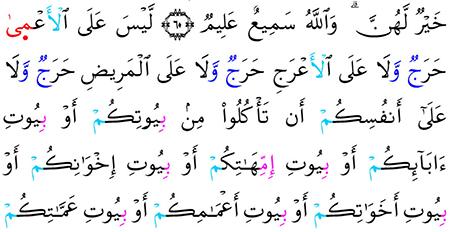 خَيْرٌ لَّهُنَّ ۗ وَاللَّهُ سَمِيعٌ عَلِيمٌ ﴿٦٠﴾ لَيْسَ عَلَى الْأَعْمِىٰ
حَرَجٌ وَّلَا عَلَى الْأَعْرَجِ حَرَجٌ وَّلَا عَلَى الْمَرِيضِ حَرَجٌ وَّلَا
عَلَىٰٓ أَنفُسِكُمْ أَن تَأْكُلُوا۟ مِنۢ بِيُوتِكُمْ أَوْ بِيُوتِ
ءَابَآئِكُمْ أَوْ بِيُوتِ إِمِّهَـٰتِكُمْ أَوْ بِيُوتِ إِخْوَٰنِكُمْ أَوْ
بِيُوتِ أَخَوَٰتِكُمْ أَوْ بِيُوتِ أَعْمَـٰمِكُمْ أَوْ بِيُوتِ عَمَّـٰتِكُمْ